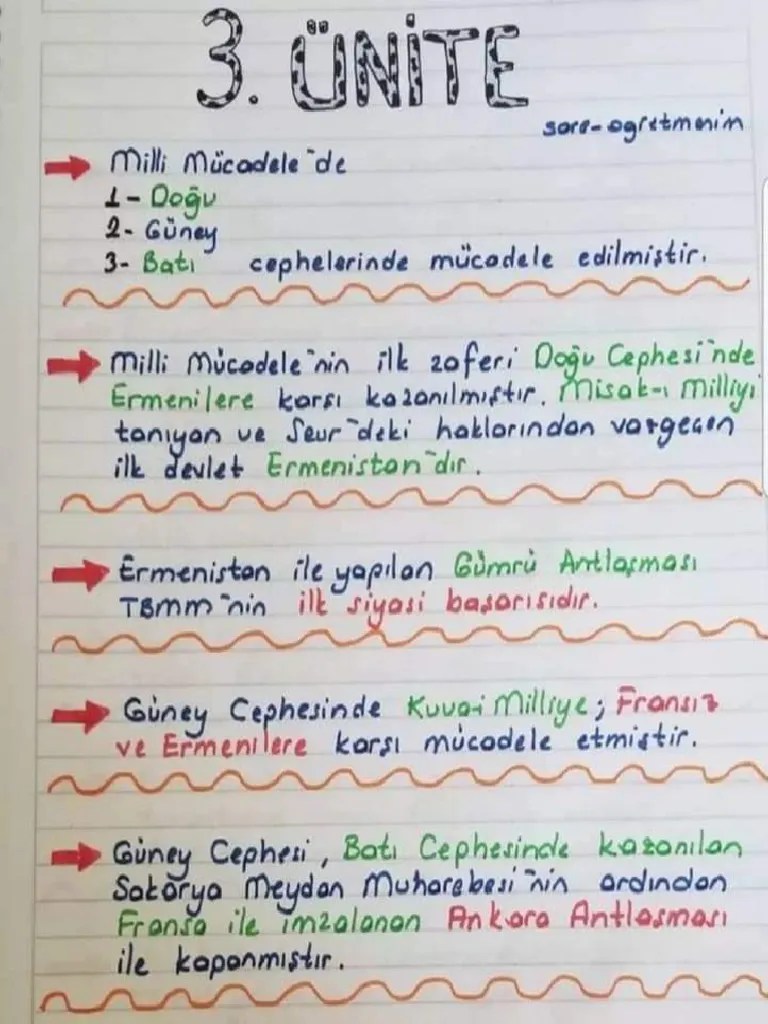 3. ÜNİTE
sara-ogretmenim
Milli Mücadele'de
1- Doğu
2- Güney
3- Batı cephelerinde mücadele edilmiştir.
Milli Mücadele'nin ilk zaferi Doğu Cephesi'nde
Ermenilere karşı kazanılmıştır. Misak-ı Milliyi
tanıyan ve Sevr'deki haklarından vazgeçen
ilk devlet Ermenistan'dır.
Ermenistan ile yapılan Gümrü Antlaşması
TBMM'nin ilk siyasi başarısıdır.
Güney Cephesinde Kuvai Milliye; Fransız
ve Ermenilere karşı mücadele etmiştir.
Güney Cephesi, Batı Cephesinde kazanılan
Sakarya Meydan Muharebesi'nin ardından
Fransa ile imzalanan Ankara Antlaşması
ile kapanmıştır.